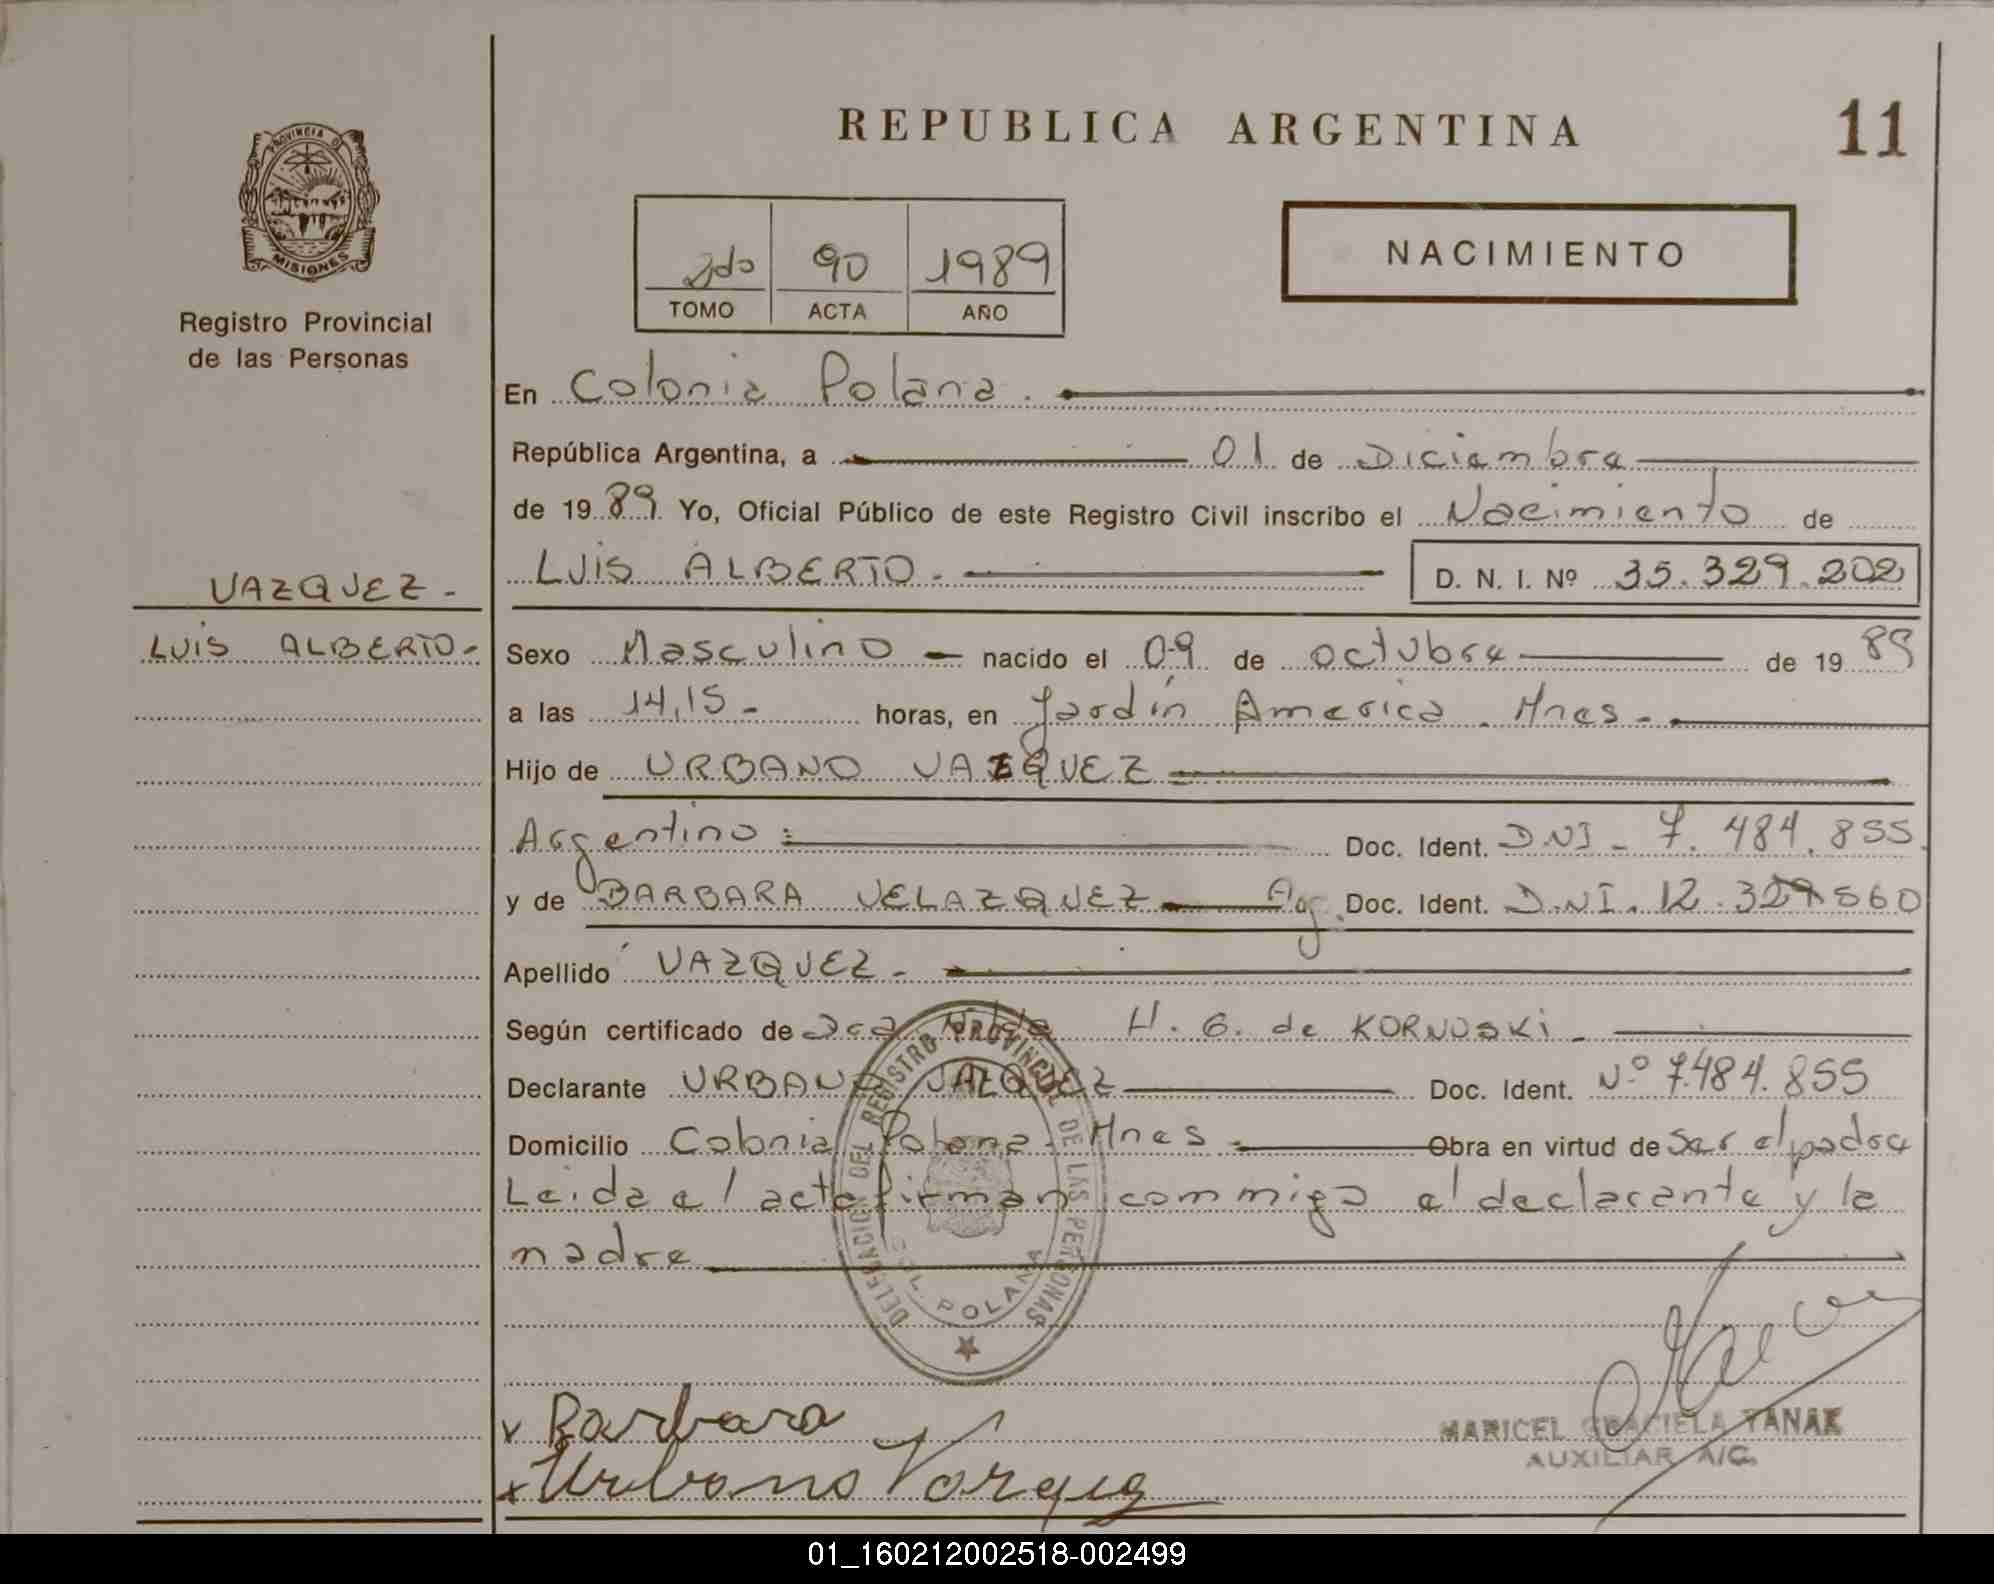 REPUBLICA ARGENTINA
11
PROVINCIA DE
MISIONES
Registro Provincial
de las Personas
2do 90 1989
TOMO ACTA AÑO
NACIMIENTO
En Colonia Polana.
República Argentina, a 01 de Diciembre
de 1989. Yo, Oficial Público de este Registro Civil inscribo el Nacimiento de
LUIS ALBERTO. D. N. I. Nº 35.329.202
VAZQUEZ -
LUIS ALBERTO -
Sexo Masculino - nacido el 09 de octubre de 1989
a las 14,15 - horas, en Jardín America. Mnes -
Hijo de URBANO VAZQUEZ
Argentino Doc. Ident. DNI - 7.484.855
y de BARBARA VELAZQUEZ Arg. Doc. Ident. D.N.I. 12.560
Apellido VAZQUEZ -
Según certificado de Dra H. G. de KORNUSKI -
Declarante URBANO VAZQUEZ Doc. Ident. Nº 7.484.855
Domicilio Colonia Polana - Mnes - Obra en virtud de Ser el padre
Leida el acta firman commigo el declarante y la
madre
DELEGACION DEL REGISTRO PROVINCIAL DE LAS PERSONAS
COL. POLANA
Barbara
Urbano Vazquez
MARICEL GRACIELA TANAK
AUXILIAR A/C.
01_160212002518-002499